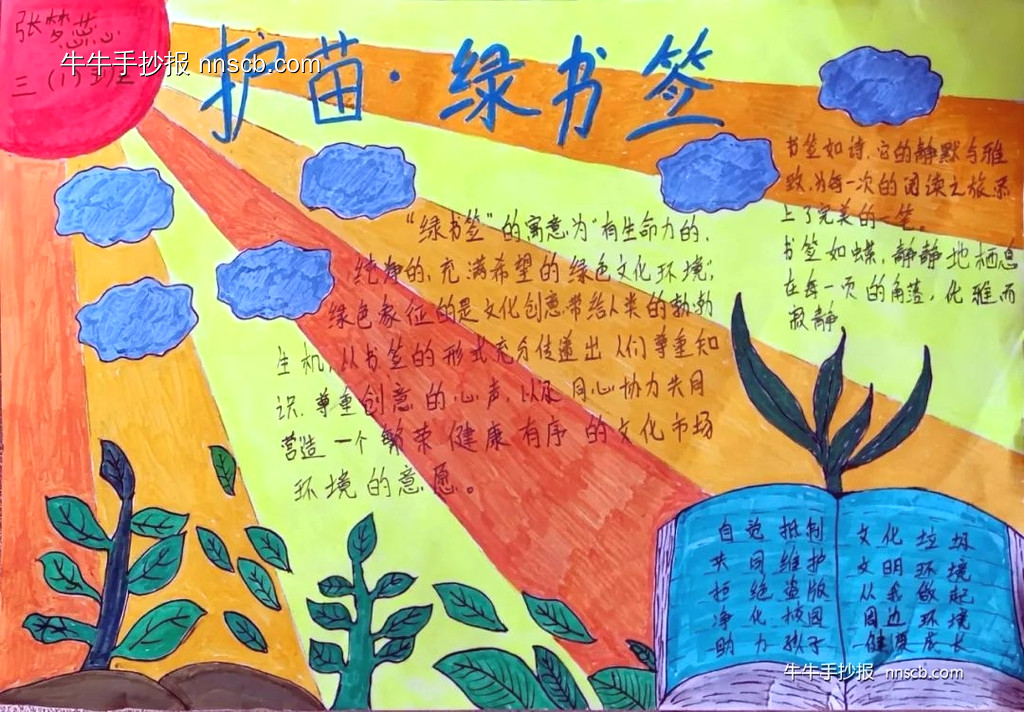 张梦蕊
三(1)班
牛牛手抄报 nnscb.com
护苗·绿书签
书签如诗,它的静默与雅
致,为每一次的阅读之旅添
上了完美的一笔。
书签如蝶,静静地栖息
在每一页的角落,优雅而
寂静
“绿书签”的寓意为“有生命力的、
纯净的、充满希望的绿色文化环境”;
绿色象征的是文化创意带给人类的勃勃
生机,从书签的形式充分传递出人们尊重知
识、尊重创意的心声,以及同心协力共同
营造一个繁荣健康有序的文化市场
环境的意愿。
自觉抵制 文化垃圾
共同维护 文明环境
拒绝盗版 从我做起
净化校园 周边环境
助力孩子 健康成长
牛牛手抄报 nnscb.com